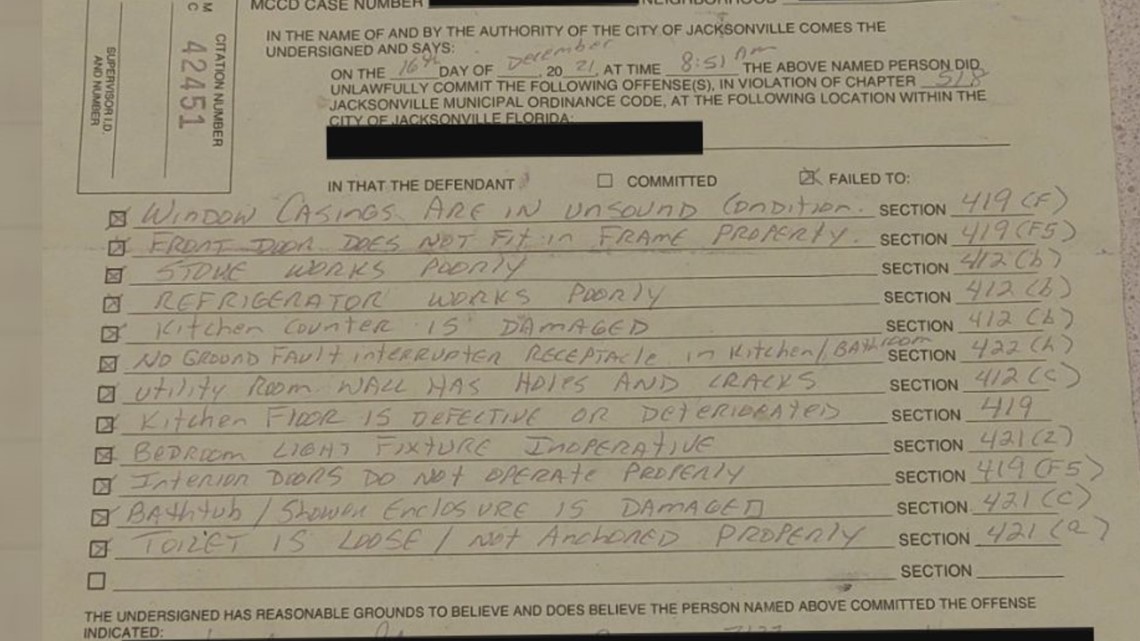 MCCD CASE NUMBER
IN THE NAME OF AND BY THE AUTHORITY OF THE CITY OF JACKSONVILLE COMES THE
UNDERSIGNED AND SAYS:
ON THE 16th DAY OF December, 2021, AT TIME 8:51 Am THE ABOVE NAMED PERSON DID
UNLAWFULLY COMMIT THE FOLLOWING OFFENSE(S), IN VIOLATION OF CHAPTER 518
JACKSONVILLE MUNICIPAL ORDINANCE CODE, AT THE FOLLOWING LOCATION WITHIN THE
CITY OF JACKSONVILLE FLORIDA:
CITATION NUMBER
42451
SUPERVISOR I.D.
AND NUMBER
IN THAT THE DEFENDANT COMMITTED FAILED TO:
WINDOW CASINGS ARE IN UNSOUND CONDITION. SECTION 419 (F)
FRONT DOOR DOES NOT Fit in FRAME PROPERTY. SECTION 419 (F5)
STOVE WORKS POORLY SECTION 412 (b)
REFRIGERATOR WORKS POORLY SECTION 412 (b)
Kitchen Counter IS DAMAGED SECTION 412 (b)
NO GROUND FAULT interrupter RECEPTACLE in Kitchen/BAthroom SECTION 422 (h)
Utility Room WALL HAS HOLES AND CRACKS SECTION 412 (c)
Kitchen FLOOR IS DEFECTIVE OR DETERIORATED SECTION 419
BEDROOM LIGHT FIXTURE INOPERATIVE SECTION 421(Z)
INTERIOR DOORS DO NOT OPERATE PROPERLY SECTION 419 (F5)
BAthtub / SHOWER ENCLOSURE IS DAMAGED SECTION 421 (C)
TOILET IS LOOSE / not Anchored PROPERLY SECTION 421 (a)
SECTION
THE UNDERSIGNED HAS REASONABLE GROUNDS TO BELIEVE AND DOES BELIEVE THE PERSON NAMED ABOVE COMMITTED THE OFFENSE
INDICATED: